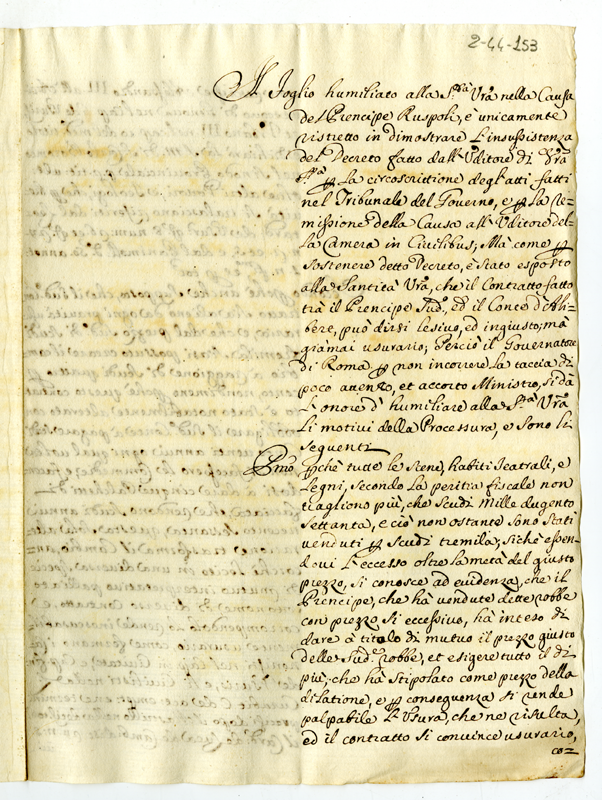 2-44-153
Il Foglio humiliato alla S.tà Vrã nella Causa
del Prencipe Ruspoli, è unicamente
ristretto in dimostrare l'insussistenza
del Decreto fatto dall'Uditore di Vrã
S.tà ꝑ la circoscrittione degl'atti fatti
nel Tribunale del Governo, e ꝑ la re=
missione della Causa all'Uditore del=
la Camera in Civilibus; Mà come ꝑ
sostenere detto Decreto, è stato esposto
alla Santità Vrã, che il Contratto fatto
trà il Prencipe Sud.º, ed il Conte d'Ali=
bere, può dirsi lesivo, ed ingiusto; mà
giàmai usurario; Perciò il Governatore
di Roma ꝑ non incorrere la taccia di
poco attento, et accorto Ministro, si dà
l'onore d'humiliare alla S.tà Vrã
li motivi della Processura, e sono li
seguenti
Pmõ ꝑche tutte le scene, habiti teatrali, e
legni, secondo la peritia fiscale non
vagliono più, che scudi mille dugento
settanta, e ciò non ostante sono stati
venduti ꝑ scudi tremila; sichè essen=
dovi l'eccesso oltre la metà del giusto
prezzo, si conosce ad evidenza, che il
Prencipe, che hà vendute dette robbe
con prezzo si eccessivo, hà inteso di
dare à titolo di mutuo il prezzo giusto
delle sud.e robbe, et esigere tutto il di
più, che hà stipolato come prezzo della
dilatione, e ꝑ conseguenza si rende
palpabile l'Usura, che ne risulta,
ed il contratto si convince usurario,
co=